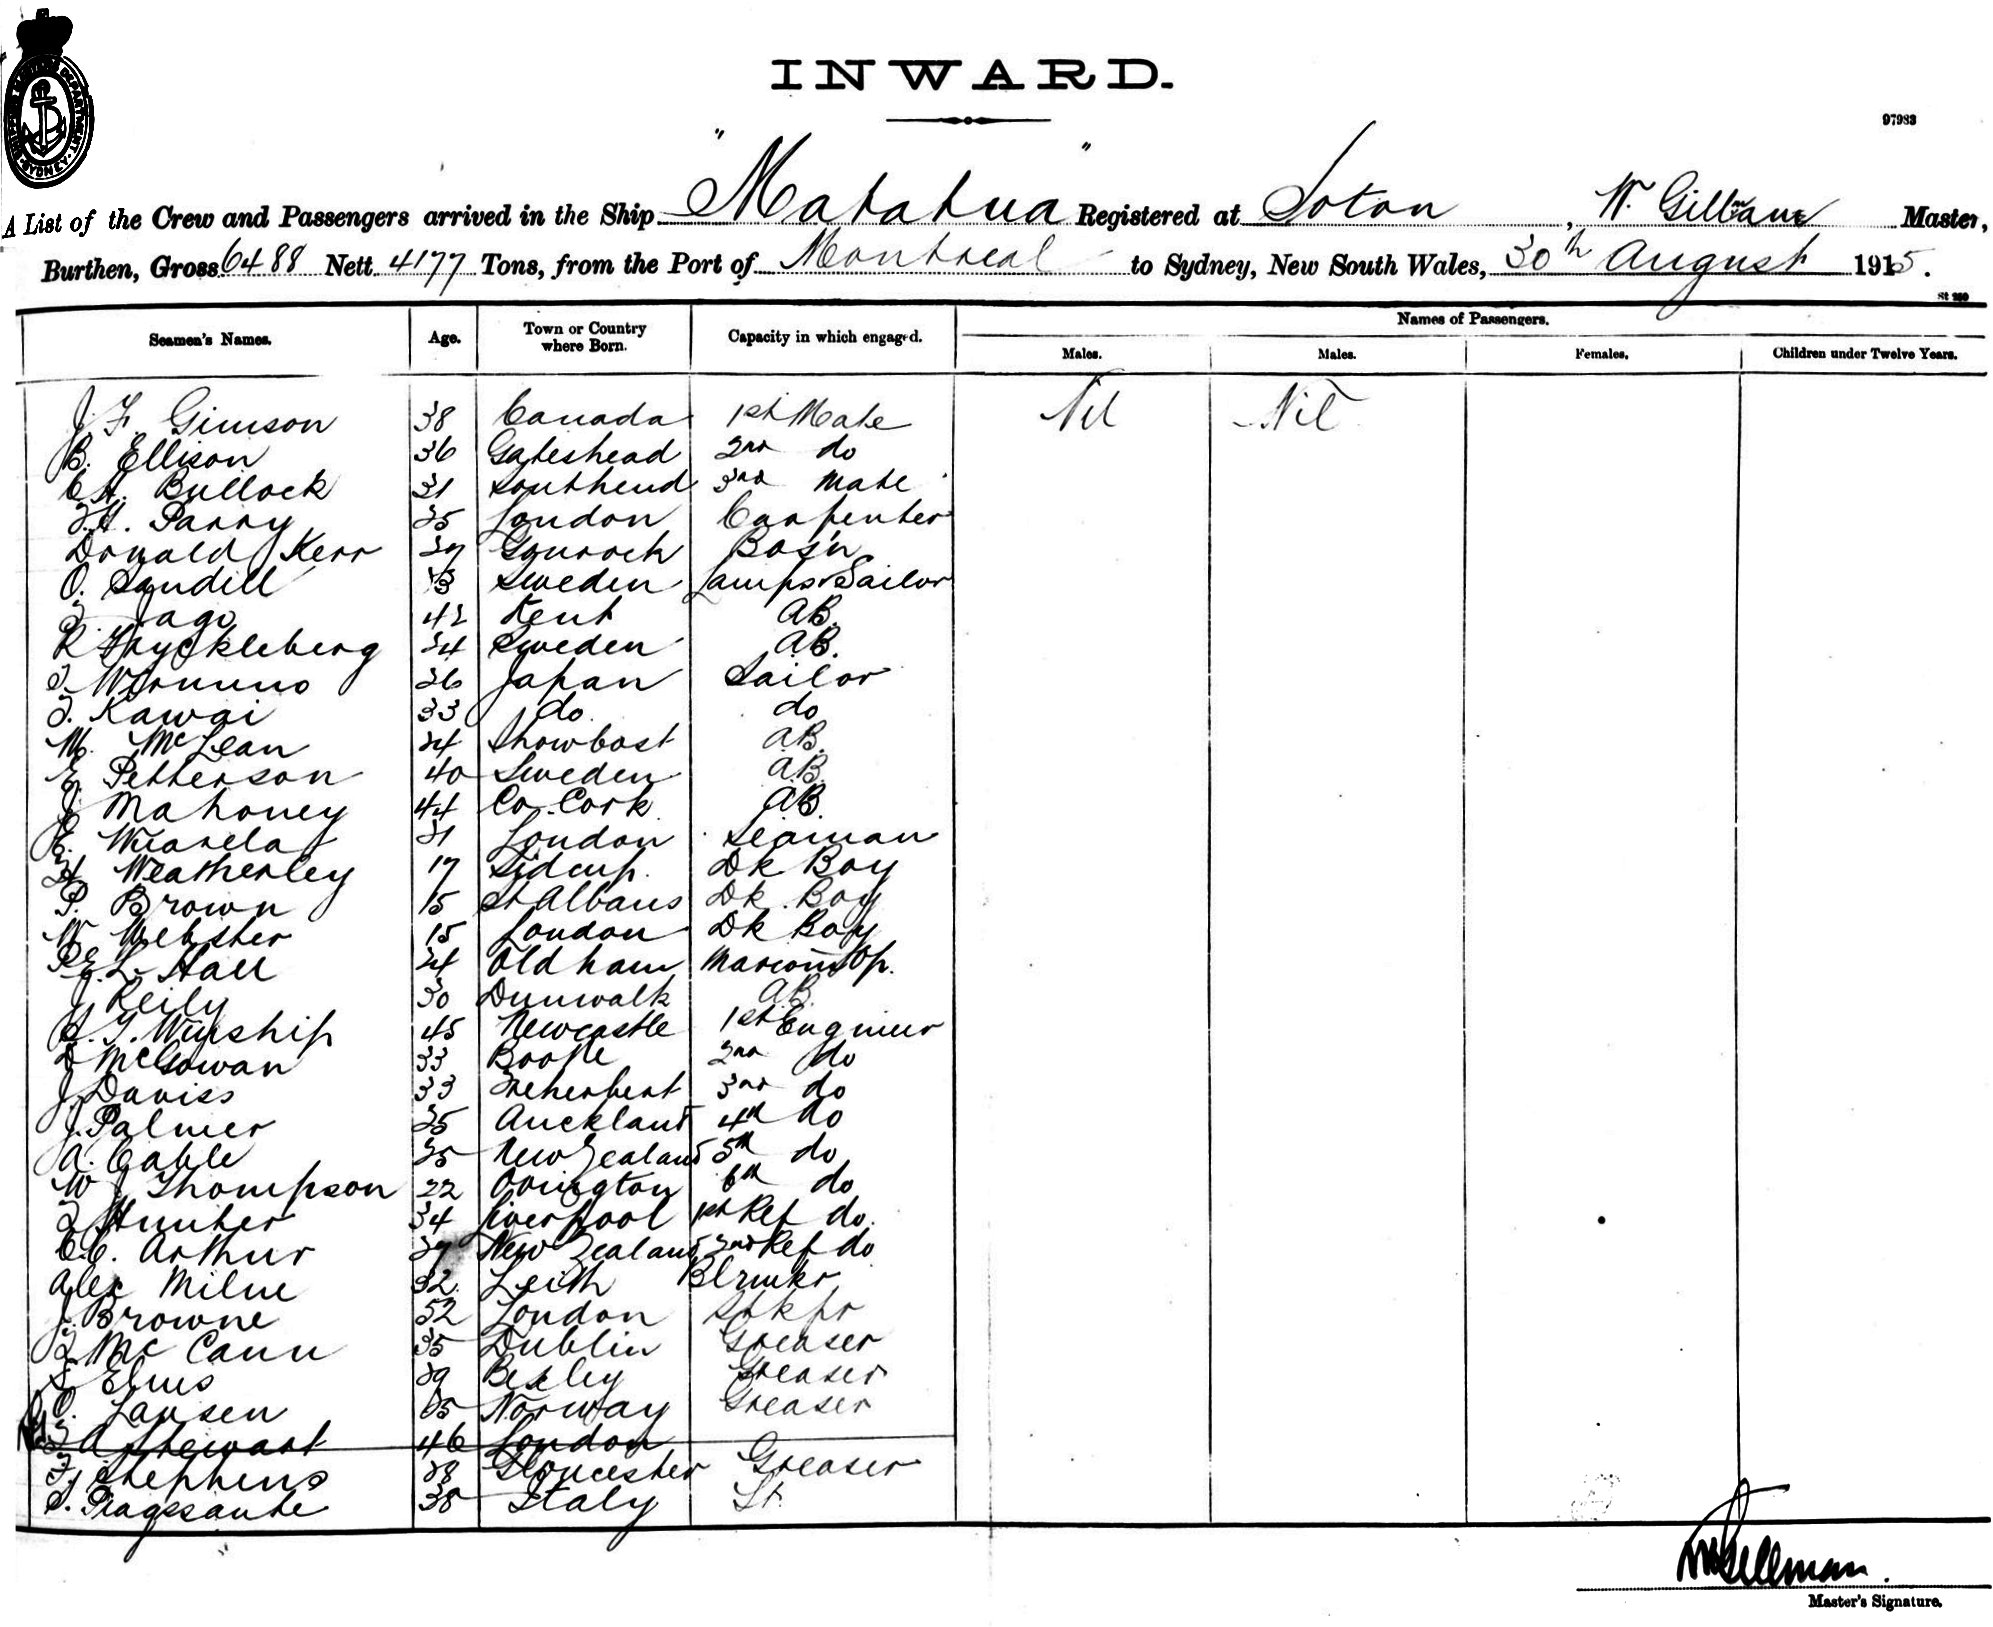 SHIPPING MASTERS DEPARTMENT · SYDNEY ·
INWARD.
97983
A List of the Crew and Passengers arrived in the Ship "Matatua" Registered at Soton, W. Gillman Master,
Burthen, Gross 6488 Nett 4177 Tons, from the Port of Montreal to Sydney, New South Wales, 30th August 1915.
St 260
Seamen's Names. Age. Town or Country where Born. Capacity in which engaged. Names of Passengers.
Males. Males. Females. Children under Twelve Years.
J F Gimson 38 Canada 1st Mate Nil Nil
B. Ellison 36 Gateshead 2nd do
C H. Bullock 31 Southend 3rd Mate
H. Parry 25 London Carpenter
Donald Kerr Gourock Bos'n
O. Sandill Sweden Lamps & Sailor
Jago 42 Kent AB.
R 34 Sweden AB.
36 Japan Sailor
Kawai 33 do do
M. McLean 24 AB.
E. Petterson 40 Sweden AB.
J Mahoney 44 Co. Cork AB.
E. 21 London Seaman
H Weatherley 17 Sidcup. Dk Boy
P. Brown 15 St Albans Dk. Boy
W Webster 15 London Dk Boy
P E L Hall 24 Oldham Marconi Op.
J Reily 30 AB.
Winship 45 Newcastle 1st Engineer
D McGowan 33 Bootle 2nd do
J Daviss 33 Treherbert 3rd do
J. Palmer 25 Auckland 4th do
A. Cable 25 New Zealand 5th do
W J Thompson 22 Orrington 6th do
Hunter 34 Liverpool 1st Ref do.
C.C. Arthur New Zealand 2nd Ref do
Alex Milne 32 Leith
J. Browne 52 London Stkpr
McCann 35 Dublin Greaser
Elms 29 Bexley Greaser
O. Larsen Norway Greaser
A Stewart 46 London
Stephens 28 Gloucester Greaser
38 Italy St.
W Gillman.
Master's Signature.